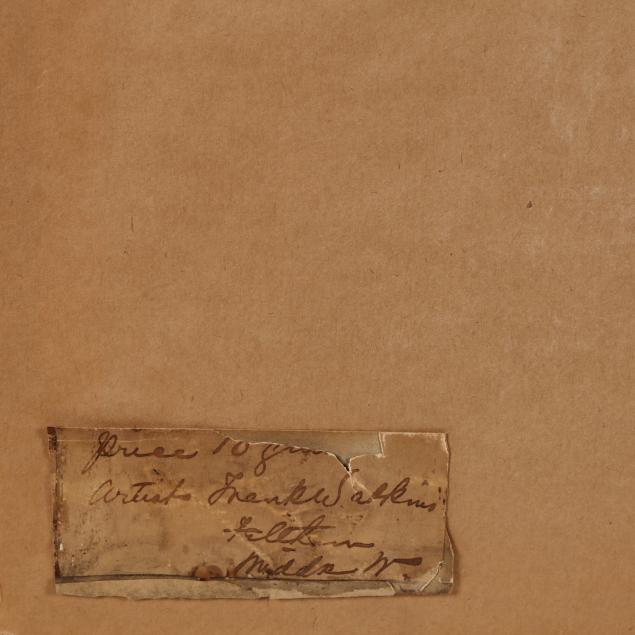 Price 10 gui
Artist Frank Walkins
Feltham
Middx W.